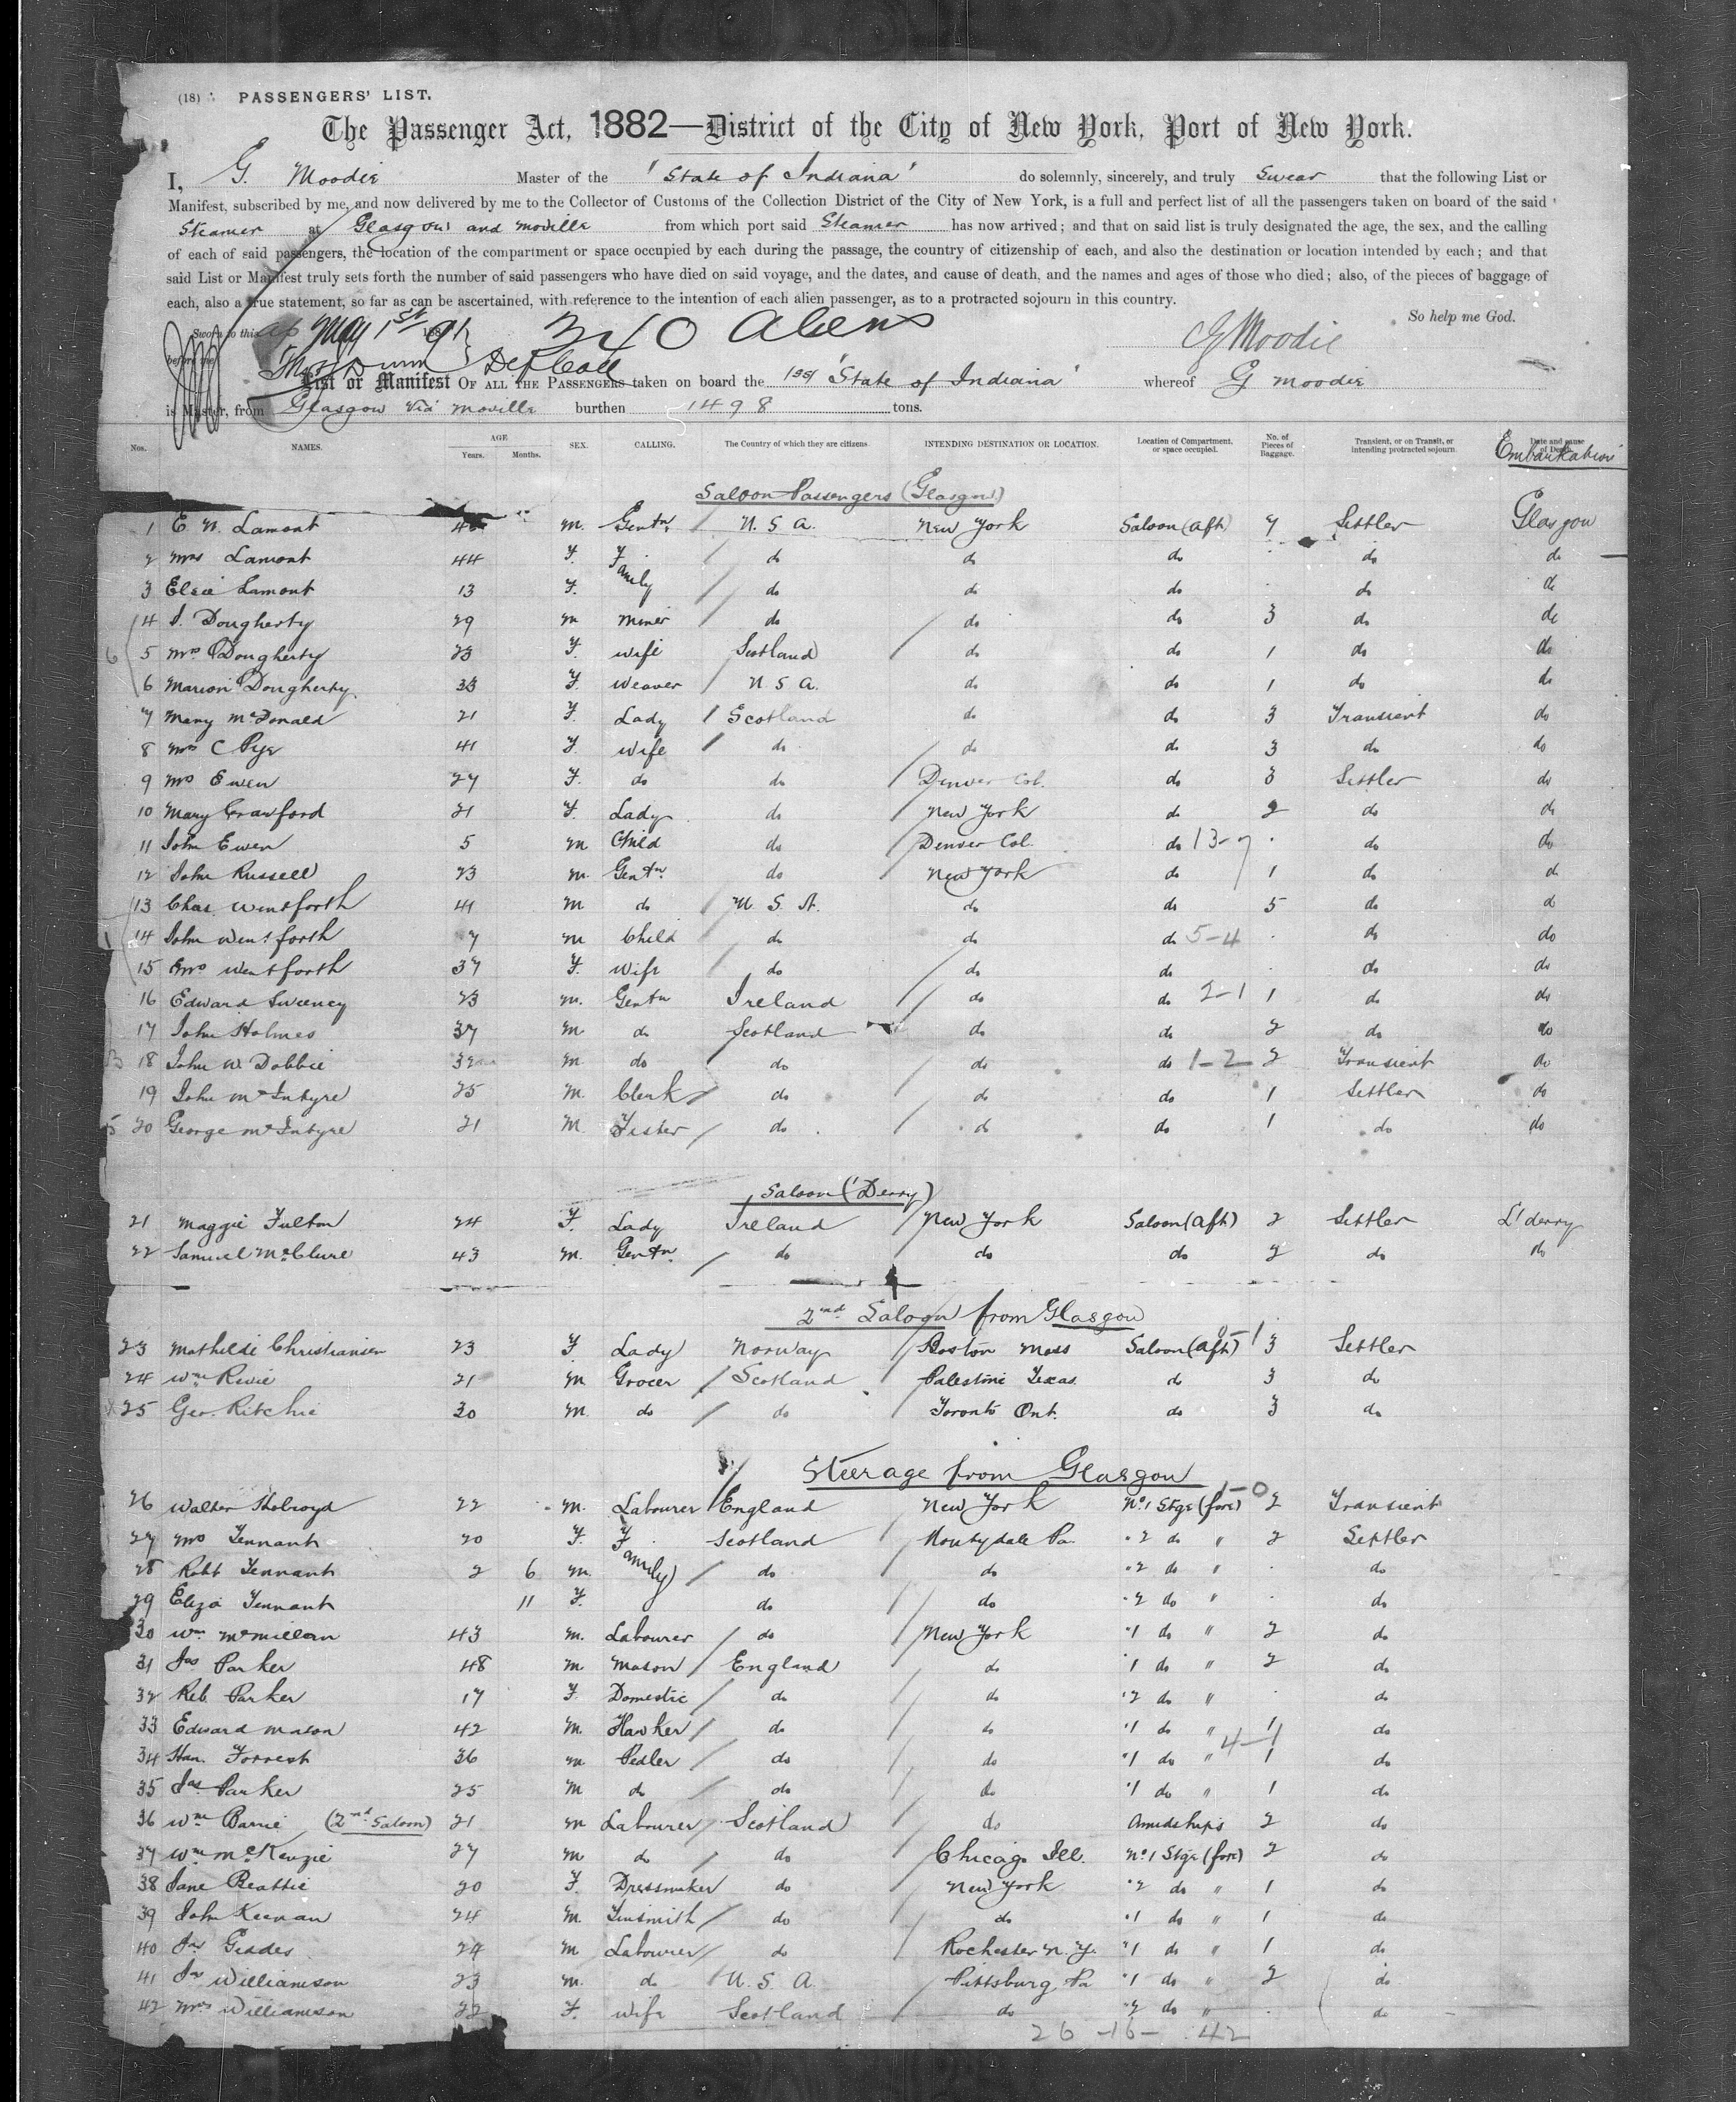 (18) PASSENGERS' LIST.
The Passenger Act, 1882—District of the City of New York, Port of New York.
I, G. Moodie Master of the 'State of Indiana' do solemnly, sincerely, and truly Swear that the following List or
Manifest, subscribed by me, and now delivered by me to the Collector of Customs of the Collection District of the City of New York, is a full and perfect list of all the passengers taken on board of the said
Steamer at Glasgow and Moville from which port said Steamer has now arrived; and that on said list is truly designated the age, the sex, and the calling
of each of said passengers, the location of the compartment or space occupied by each during the passage, the country of citizenship of each, and also the destination or location intended by each; and that
said List or Manifest truly sets forth the number of said passengers who have died on said voyage, and the dates, and cause of death, and the names and ages of those who died; also, of the pieces of baggage of
each, also a true statement, so far as can be ascertained, with reference to the intention of each alien passenger, as to a protracted sojourn in this country.
So help me God.
Sworn to this May 1st 1891 340 Aliens G Moodie
before me
List or Manifest OF ALL THE PASSENGERS taken on board the 'State of Indiana' whereof G Moodie
is Master, from Glasgow via Moville burthen 1498 tons.
Nos. NAMES. AGE Years. Months. SEX. CALLING. The Country of which they are citizens. INTENDING DESTINATION OR LOCATION. Location of Compartment, or space occupied. No. of Pieces of Baggage. Transient, or on Transit, or intending protracted sojourn. Date and cause of Death. Embarkation
Saloon Passengers (Glasgow)
1 E. N. Lamont M. Gentn U. S. A. New York Saloon (aft) 7 Settler Glasgow
2 Mrs Lamont 44 F. Family do do do do do
3 Elsie Lamont 13 F. do do do do do
4 J. Dougherty 29 M Miner do do do 3 do do
5 Mrs Dougherty 23 F. Wife Scotland do do 1 do do
6 Marion Dougherty 33 F. Weaver U. S. A. do do 1 do do
7 Mary McDonald 21 F. Lady Scotland do do 3 Transient do
8 Mrs C Pye 41 F. Wife do do do 3 do do
9 Mrs Ewen 27 F. do do Denver Col. do 3 Settler do
10 Mary Crawford 21 F. Lady do New York do 2 do do
11 John Ewen 5 M Child do Denver Col. do 13-7 do do
12 John Russell 23 M. Gentn do New York do 1 do do
13 Chas. Wentforth 41 M do U. S. A. do do 5 do do
14 John Wentforth 7 M Child do do do 5-4 do do
15 Mrs Wentforth 37 F. Wife do do do do do
16 Edward Sweeney 23 M. Gentn Ireland do do 2-1 1 do do
17 John Holmes 37 M. do Scotland do do 2 do do
18 John W. Dobbie 32 M do do do do 1-2 2 Transient do
19 John McIntyre 25 M. Clerk do do do 1 Settler do
20 George McIntyre 21 M. do do do 1 do do
Saloon (Derry)
21 Maggie Fulton 24 F. Lady Ireland New York Saloon (aft) 2 Settler L'derry
22 Samuel McClure 43 M. Gentn do do do 2 do do
2nd Saloon from Glasgow
23 Mathilde Christiansen 23 F Lady Norway Boston Mass Saloon (aft) 0-1 3 Settler
24 Wm Rivie 21 M Grocer Scotland Palestine Texas do 3 do
25 Geo. Ritchie 30 M. do do Toronto Ont. do 3 do
Steerage from Glasgow
26 Walter Holroyd 22 M. Labourer England New York No 1 Stge (fore) 1-0 2 Transient
27 Mrs Tennant 20 F. Family Scotland Pa. " 2 do " 2 Settler
28 Robt Tennant 2 6 M. do do " 2 do " do
29 Eliza Tennant 11 F. do do " 2 do " do
30 Wm McMillan 43 M. Labourer do New York " 1 do " 2 do
31 Jas Parker 48 M Mason England do " 1 do " 2 do
32 Reb. Parker 17 F. Domestic do do " 2 do " do
33 Edward Mason 42 M. Hawker do do " 1 do " 1 do
34 Han. Forrest 36 M Pedler do do " 1 do " 4-1 1 do
35 Jas Parker 25 M do do do " 1 do " 1 do
36 Wm Barrie (2nd Saloon) 21 M Labourer Scotland do Amidships 2 do
37 Wm McKenzie 27 M do do Chicago Ill. No 1 Stge (fore) 2 do
38 Jane Beattie 20 F. Dressmaker do New York " 2 do " 1 do
39 John Keenan 24 M. Tinsmith do do " 1 do " 1 do
40 Jas Geddes 24 M Labourer do Rochester N. Y. " 1 do " 1 do
41 Jas Williamson 23 M. do U. S. A. Pittsburg Pa " 1 do " 2 do
42 Mrs Williamson 22 F. Wife Scotland do " 2 do " do
26 -16- 42